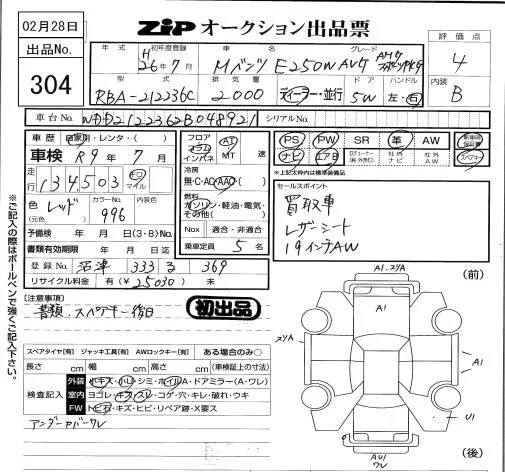 02月28日
ZiP オークション出品票
出品No.
304
評価点
4
内装
B
年式 初年度登録 車名 グレード
H 26年7月 Mベンツ E250W AVG
型式 排気量 ドア ハンドル
RBA-212236C 2000 ディーラー・並行 5W 左・右
車台No. WDD2122362B048921 シリアルNo.
車歴 自家用・レンタ・( )
車検 R9年7月
走行 134,503 キロ マイル
色 レッド カラーNo. 996 内装色
(元色)
予備検 年 月 日(3・8)No.
書類有効期限 年 月 日迄
登録No. 沼津 333 る 369
リサイクル料金 有(¥25030) 未
フロア コラム インパネ AT MT 速
冷房
無・C・AC・AAC・( )
燃料
ガソリン・軽油・電気・その他( )
Nox 適合・非適合
乗車定員 5 名
PS PW SR 革 AW 新車時保証書
ナビ エアB 社外ナビ 社外AW スペアキー
※上記太枠内は標準装備品
セールスポイント
買取車
レザーシート
19インチAW
(注意事項)
書類、スペアキー後日
初出品
スペアタイヤ[有] ジャッキ工具[有] AWロックキー[有] ある場合のみ○
長さ cm 幅 cm 高さ cm (車検証上の寸法)
検査記入
外装 小キズ・凹・シミ・ホイルA・ドアミラー(A・ワレ)
室内 ヨゴレ・キズ・スレ・コゲ・穴・キレ・破れ・ウキ
FW トビ石・キズ・ヒビ・リペア跡・X要ス
アンダーカバーワレ
※ご記入の際はボールペンで強くご記入下さい。
(前)
A1
A1
U1
ワレ
(後)